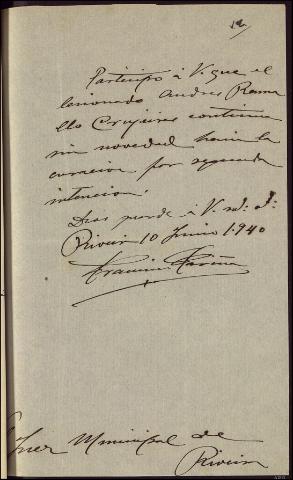 Participo á V. que el
lesionado Andres Rama
llo Crujeires continua
sin novedad hacia la
curacion por segunda
intencion.
Dios guarde á V. ms. as.
Riveira 10 Junio 1.940
Francisco
Juez Municipal de
Riveira